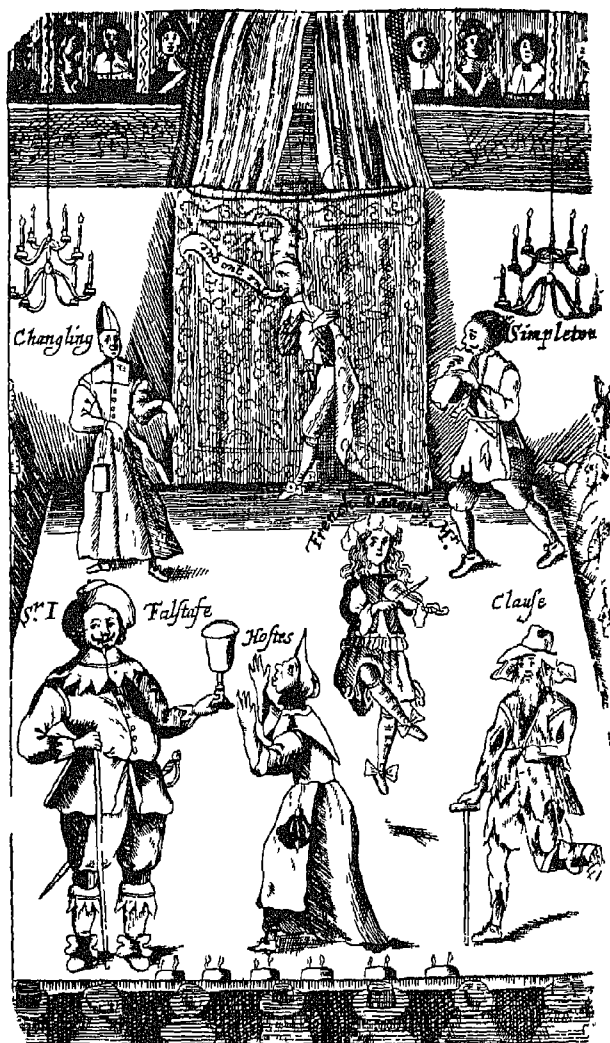 Tu quoque
Changling
Simpleton
French Dancing Mr.
Sr. I
Falstafe
Hostes
Clause